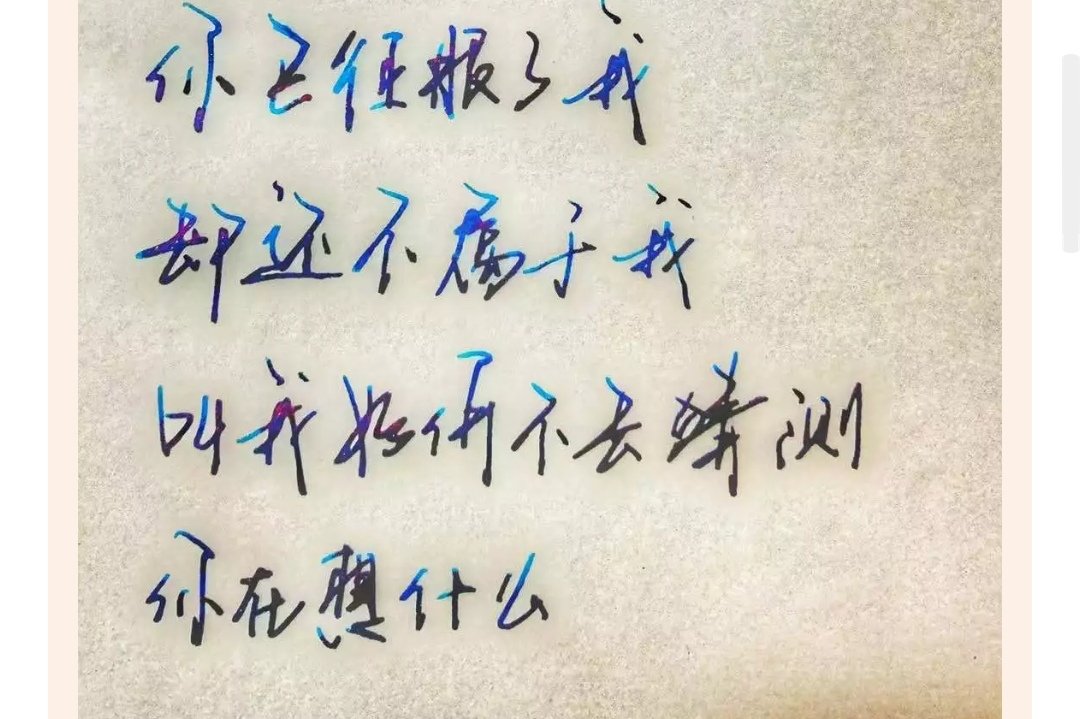 你已征服了我
却还不属于我
叫我如何不去猜测
你在想什么